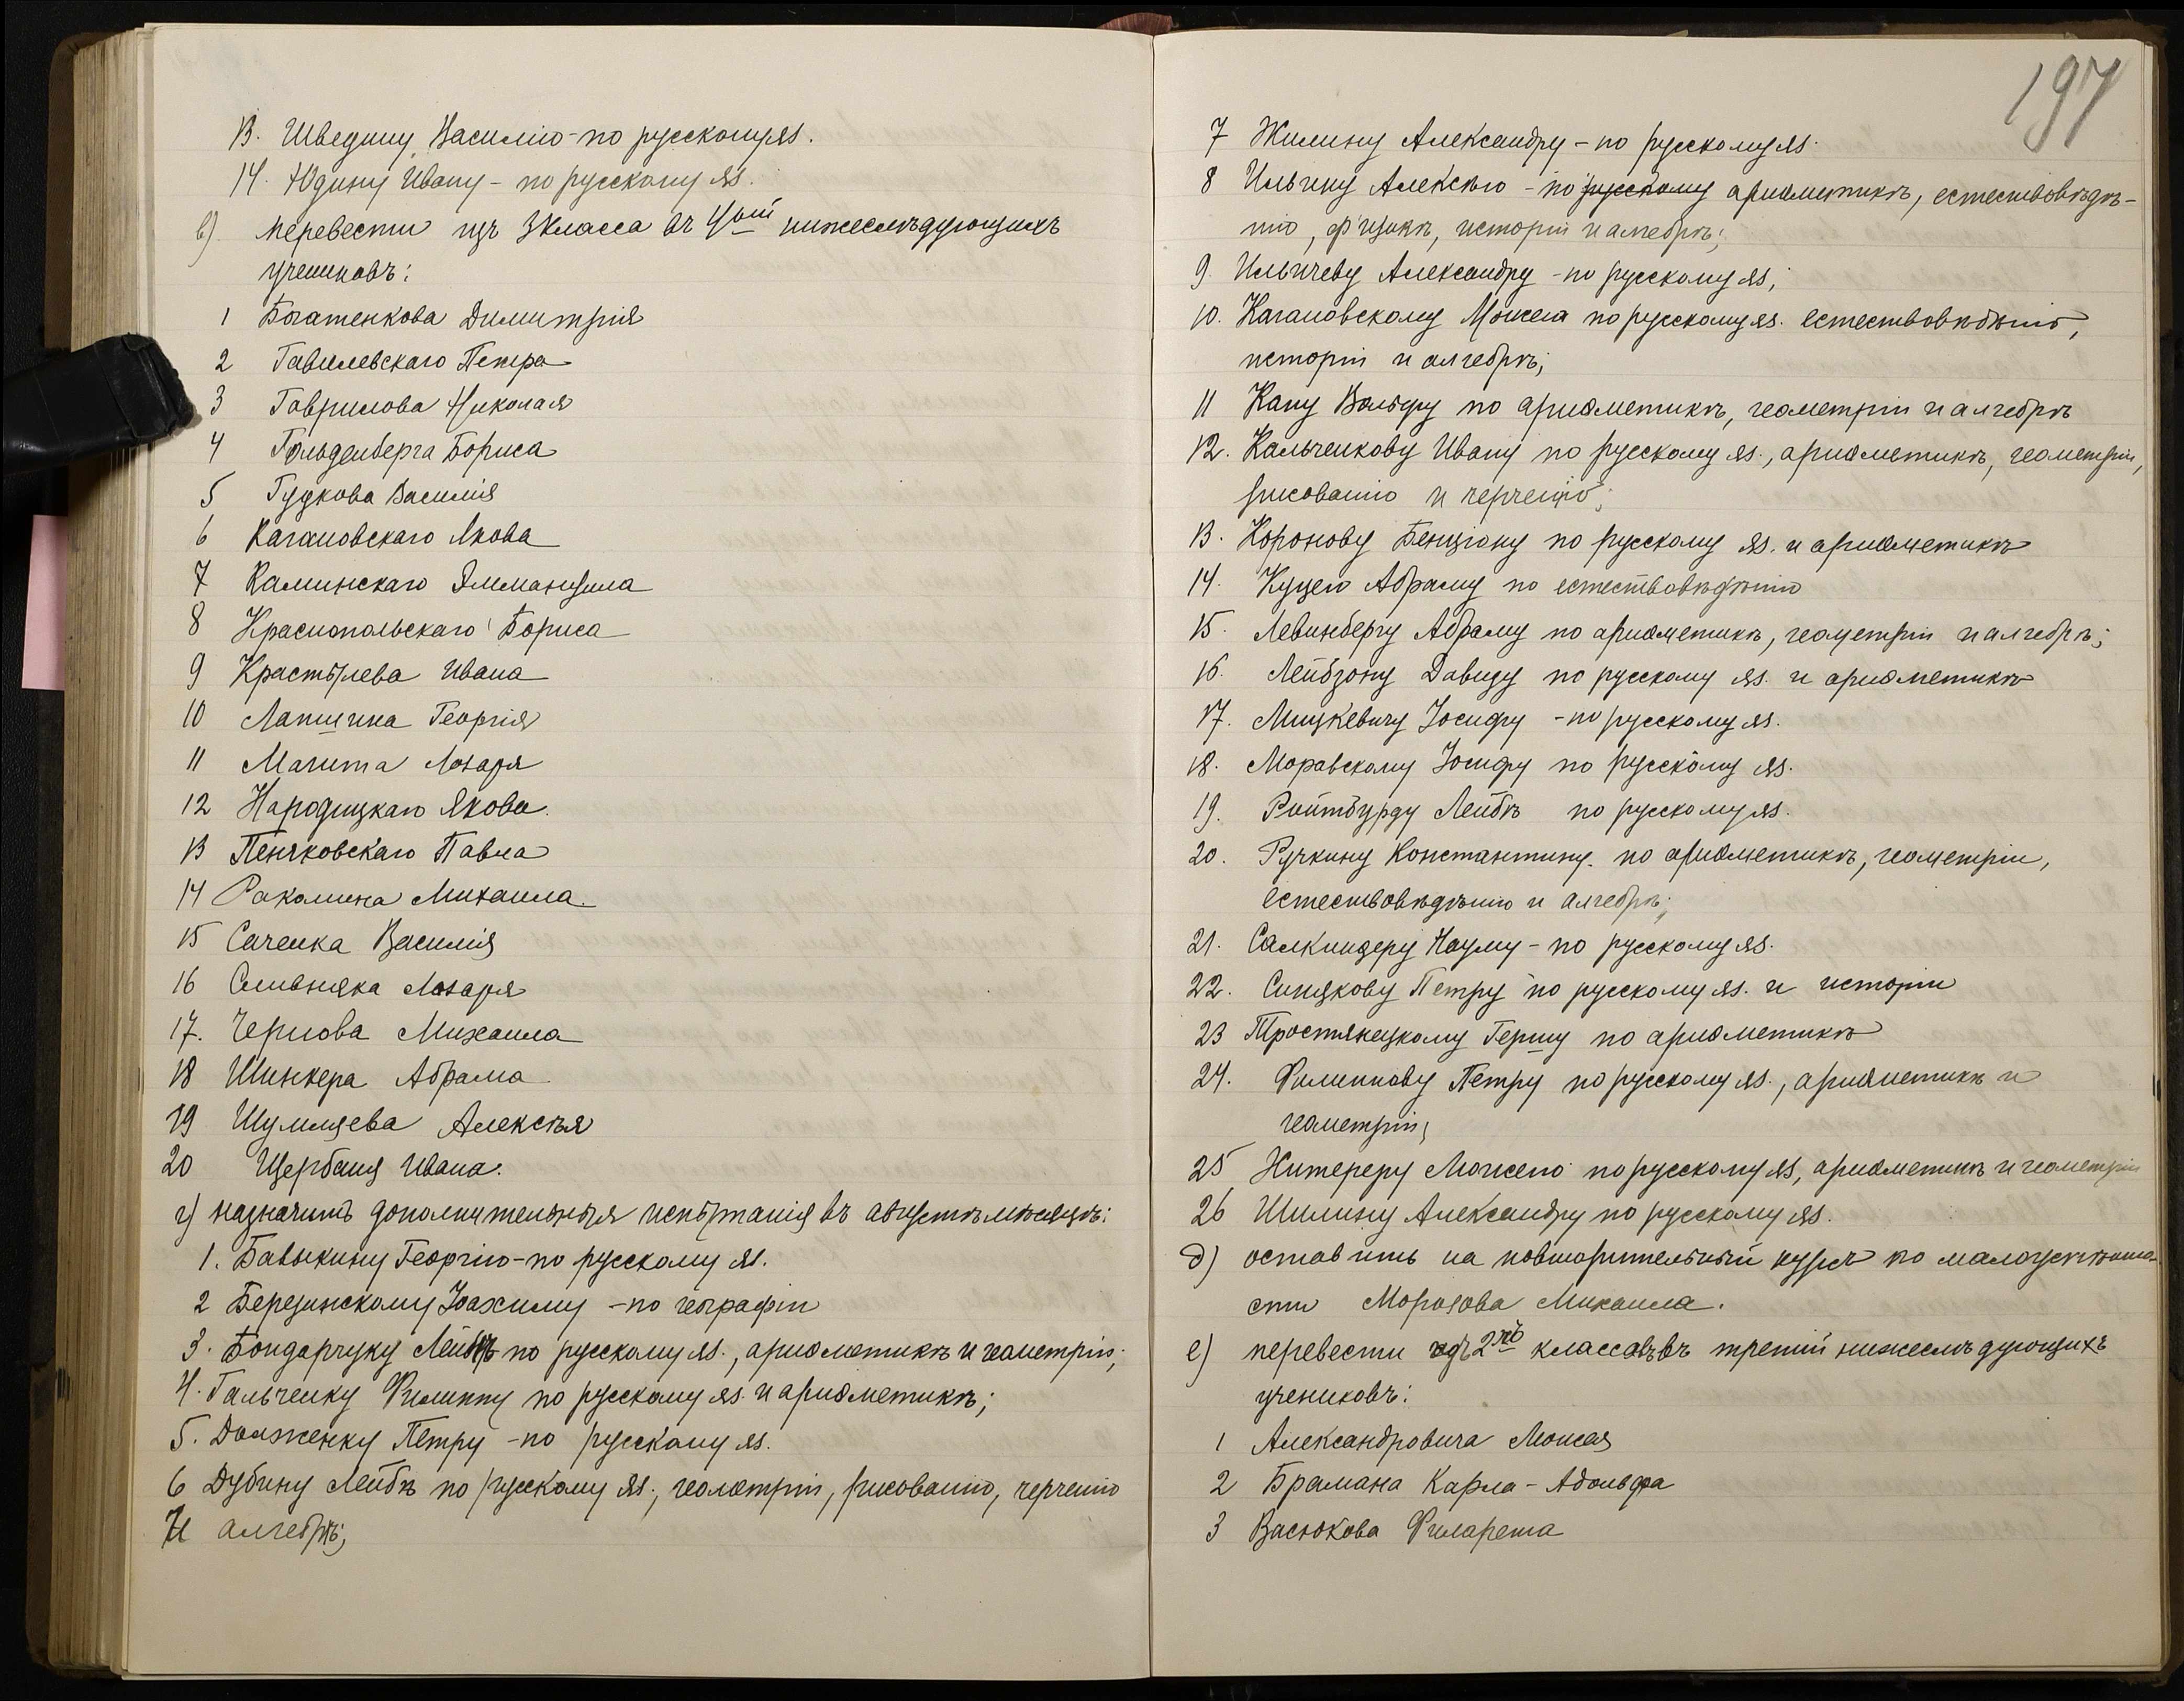 13. Шведину Василію - по русскому яз.
14. Юдину Ивану - по русскому яз.
в) перевести изъ 3 класса въ 4ый нижеслѣдующихъ
учениковъ:
1 Богатенкова Димитрія
2 Гавилевскаго Петра
3 Гаврилова Николая
4 Гольденберга Бориса
5 Гудкова Василія
6 Кагановскаго Якова
7 Каминскаго Эммануила
8 Краснопольскаго Бориса
9 Крастылева Ивана
10 Лапшина Георгія
11 Магита Лазаря
12 Народицкаго Якова.
13 Пеньковскаго Павла
14 Рокалина Михаила.
15 Саченка Василія
16 Сливняка Лазаря
17. Чернова Михаила
18 Шинкера Абрама
19 Шумляева Алексѣя
20 Щербаня Ивана.
г) назначить дополнительныя испытанія въ августѣ мѣсяцѣ:
1. Бавыкину Георгію - по русскому яз.
2 Березинскому Іоахиму - по географіи
3. Бондарчуку Лейбѣ по русскому яз., ариѳметикѣ и геометріи;
4. Гальченку Филиппу по русскому яз. и ариѳметикѣ;
5. Долженку Петру - по русскому яз.
6 Дубину Лейбѣ по русскому яз., геометріи, рисованію, черченію
и алгебрѣ;
197
7 Жилину Александру - по русскому яз.
8 Ильину Алексѣю - по русскому ариѳметикѣ, естествовѣдѣ-
нію, физикѣ, исторіи и алгебрѣ;
9. Ильичеву Александру - по русскому яз,
10. Кагановскому Моисею по русскому яз. естествовѣдѣнію,
исторіи и алгебрѣ;
11 Кану Вольфу по ариѳметикѣ, геометріи и алгебрѣ
12. Кальченкову Ивану по русскому яз., ариѳметикѣ, геометріи,
рисованію и черченію;
13. Коронову Бенціону по русскому яз. и ариѳметикѣ
14. Куцею Абраму по естествовѣдѣнію
15. Левинбергу Абраму по ариѳметикѣ, геометріи и алгебрѣ;
16. Лейбзону Давиду по русскому яз. и ариѳметикѣ
17. Мицкевичу Іосифу - по русскому яз.
18. Моравскому Іосифу по русскому яз.
19. Ройтбурду Лейбѣ по русскому яз.
20. Ручкину Константину по ариѳметикѣ, геометріи,
естествовѣдѣнію и алгебрѣ;
21. Салкиндеру Науму - по русскому яз.
22. Синякову Петру по русскому яз. и исторіи
23 Тростянецкому Гершу по ариѳметикѣ
24. Филиппову Петру по русскому яз., ариѳметикѣ и
геометріи,
25 Хитереру Моисею по русскому яз, ариѳметикѣ и геометріи
26 Шилину Александру по русскому яз.
д) оставить на повторительный курсъ по малоуспѣшно-
сти Морозова Михаила.
е) перевести изъ 2го класса въ третій нижеслѣдующихъ
учениковъ:
1 Александровича Моисея
2 Брамана Карла - Адольфа
3 Васюкова Филарета